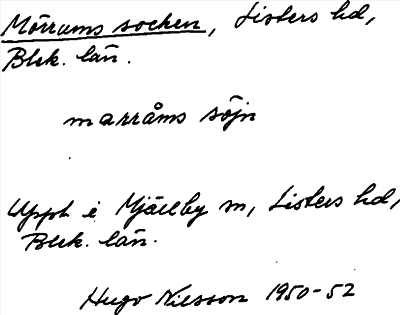 Mörrums socken, Listers hd,
Blek. län.
marråms söjn
Uppt. i Mjällby sn, Listers hd,
Blek. län.
Hugo Nilsson 1950-52